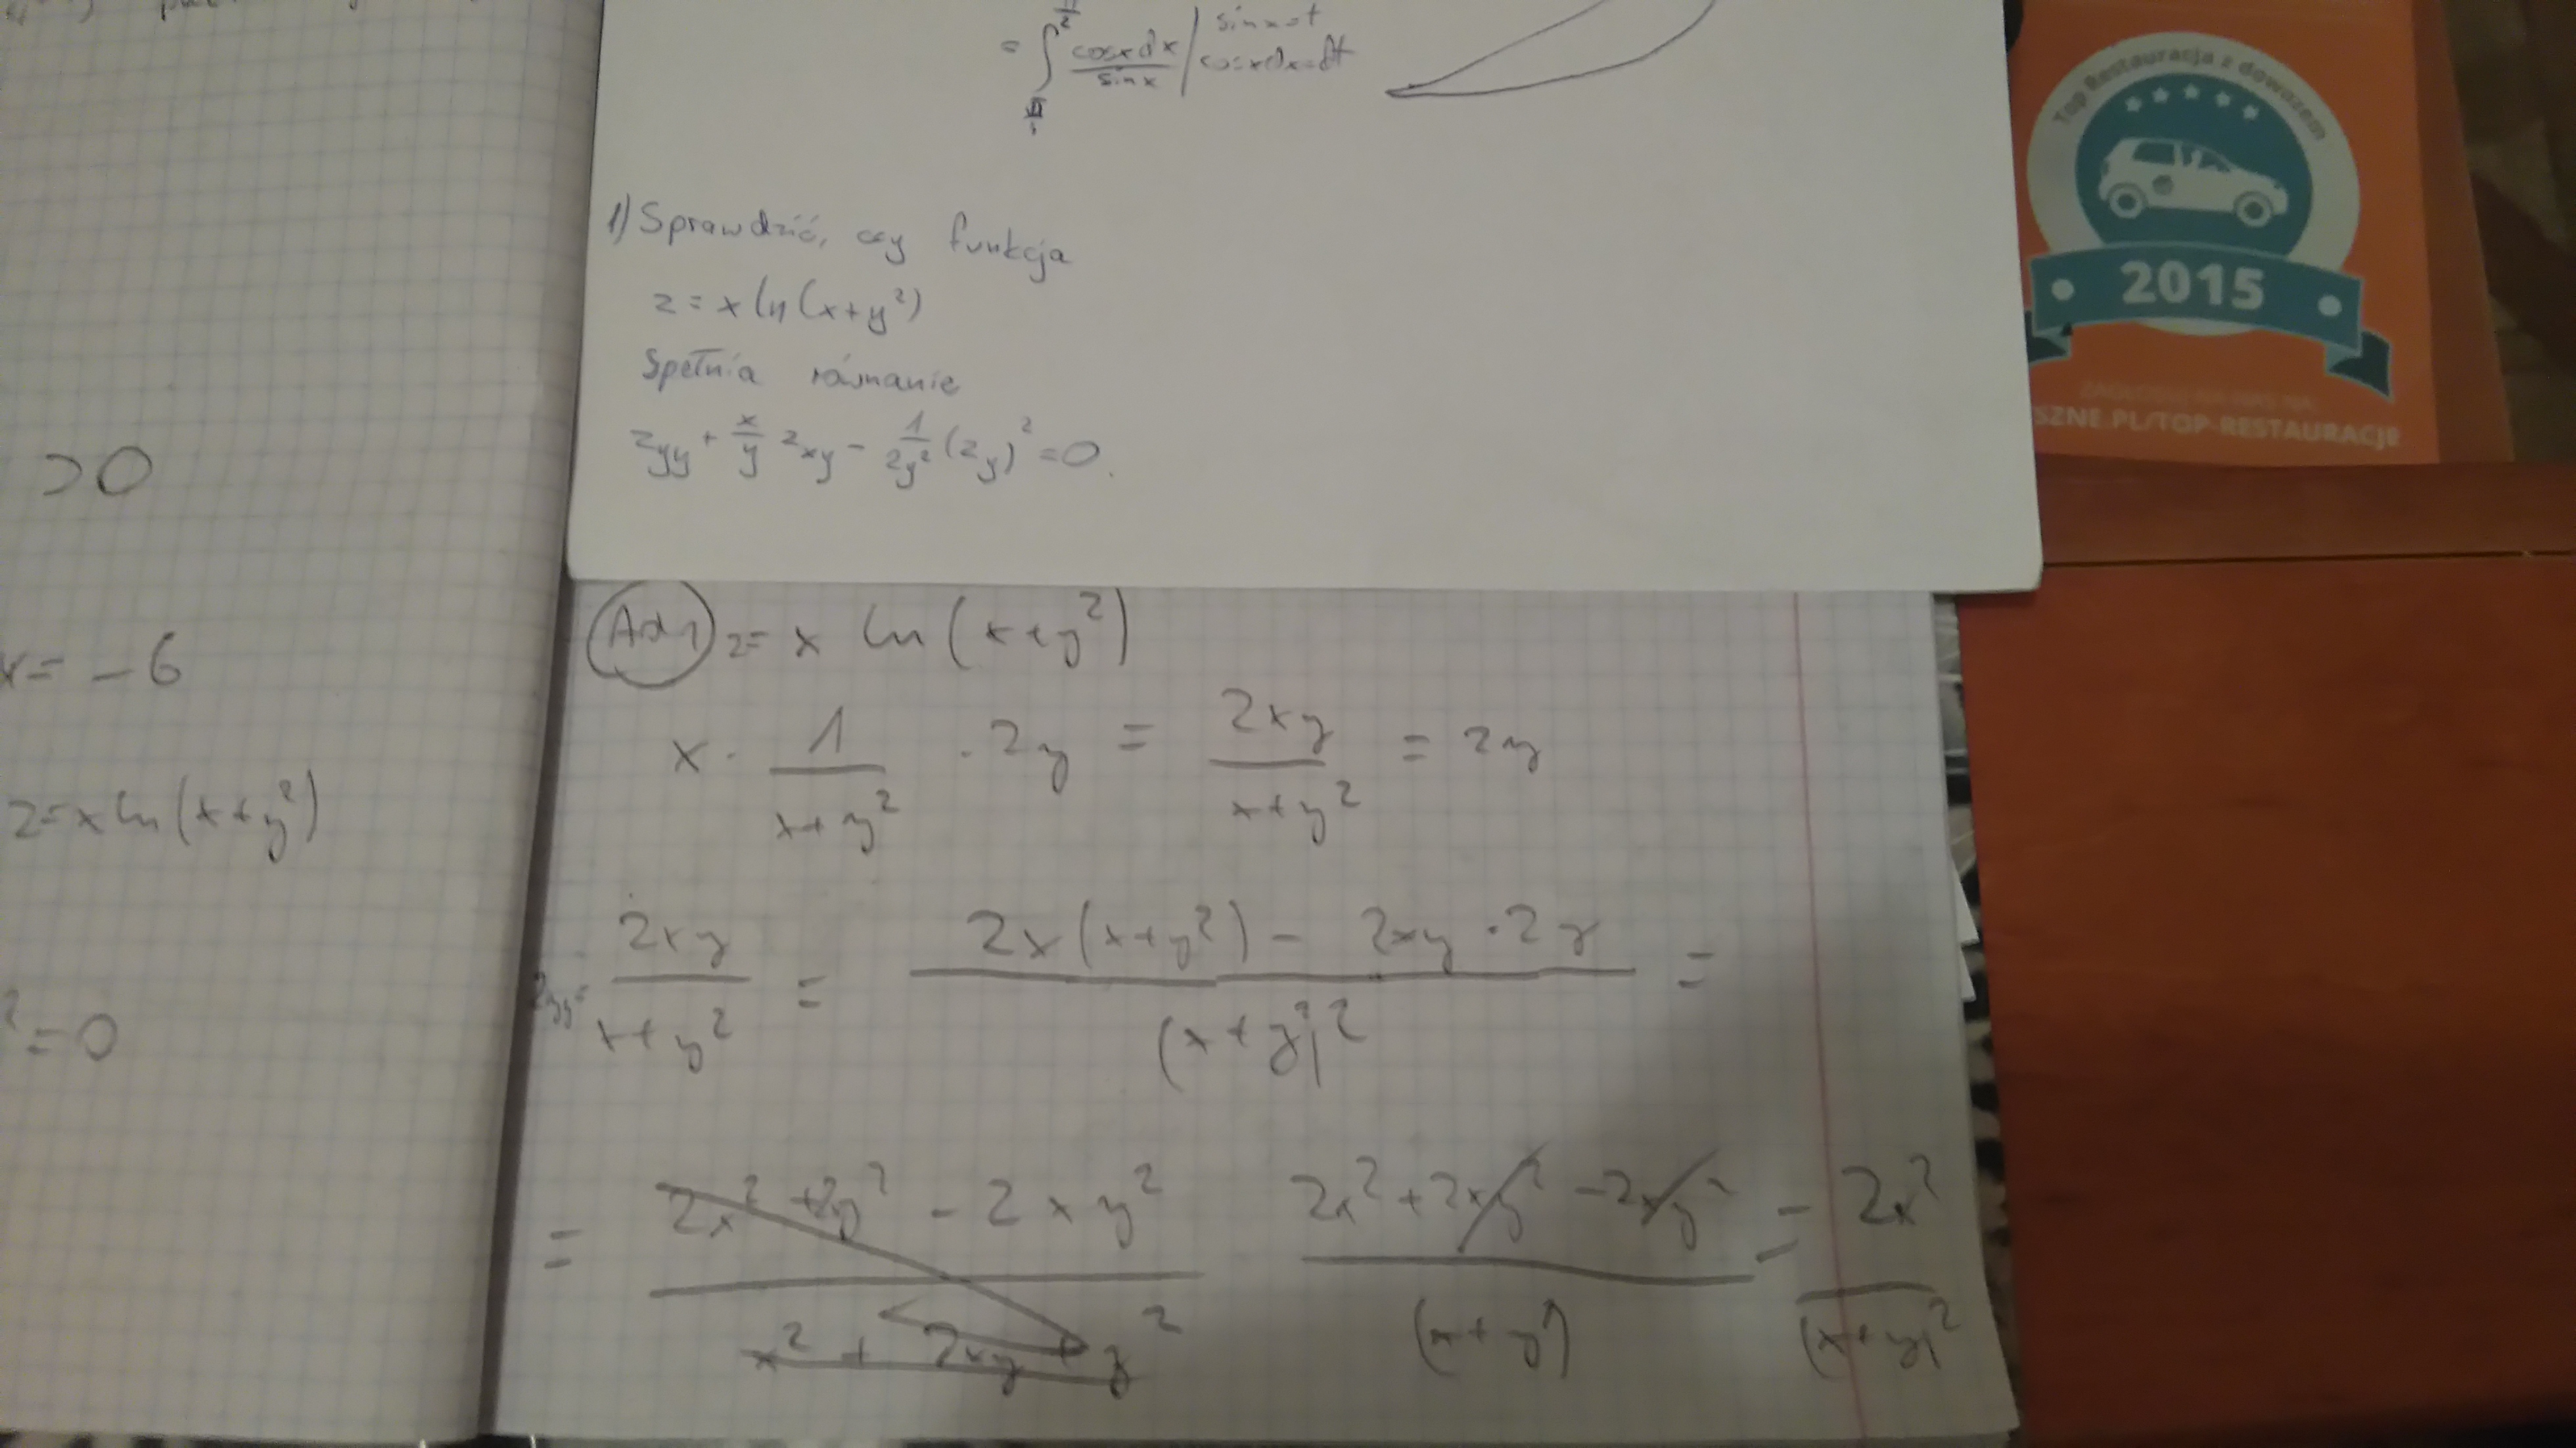 = ∫ cosxdx / sinx | sinx=t
cosxdx=dt
π/2
1) Sprawdzić, czy funkcja
z = x ln(x+y²)
Spełnia równanie
zyy + x/y zxy - 1/2y² (zy)² = 0.
Top Restauracja z dowozem
2015
SZNE.PL/TOP-RESTAURACJE
>0
x= -6
z=x ln(x+y²)
²=0
Ad1 z= x ln(x+y²)
x · 1/x+y² · 2y = 2xy/x+y² = zy
zyy= 2xy/x+y² = 2x(x+y²) - 2xy·2y / (x+y²)² =
= 2x²+2y² - 2xy² / x²+2xy+y² 2x²+2xy²-2xy² / (x+y²) = 2x² / (x+y)²